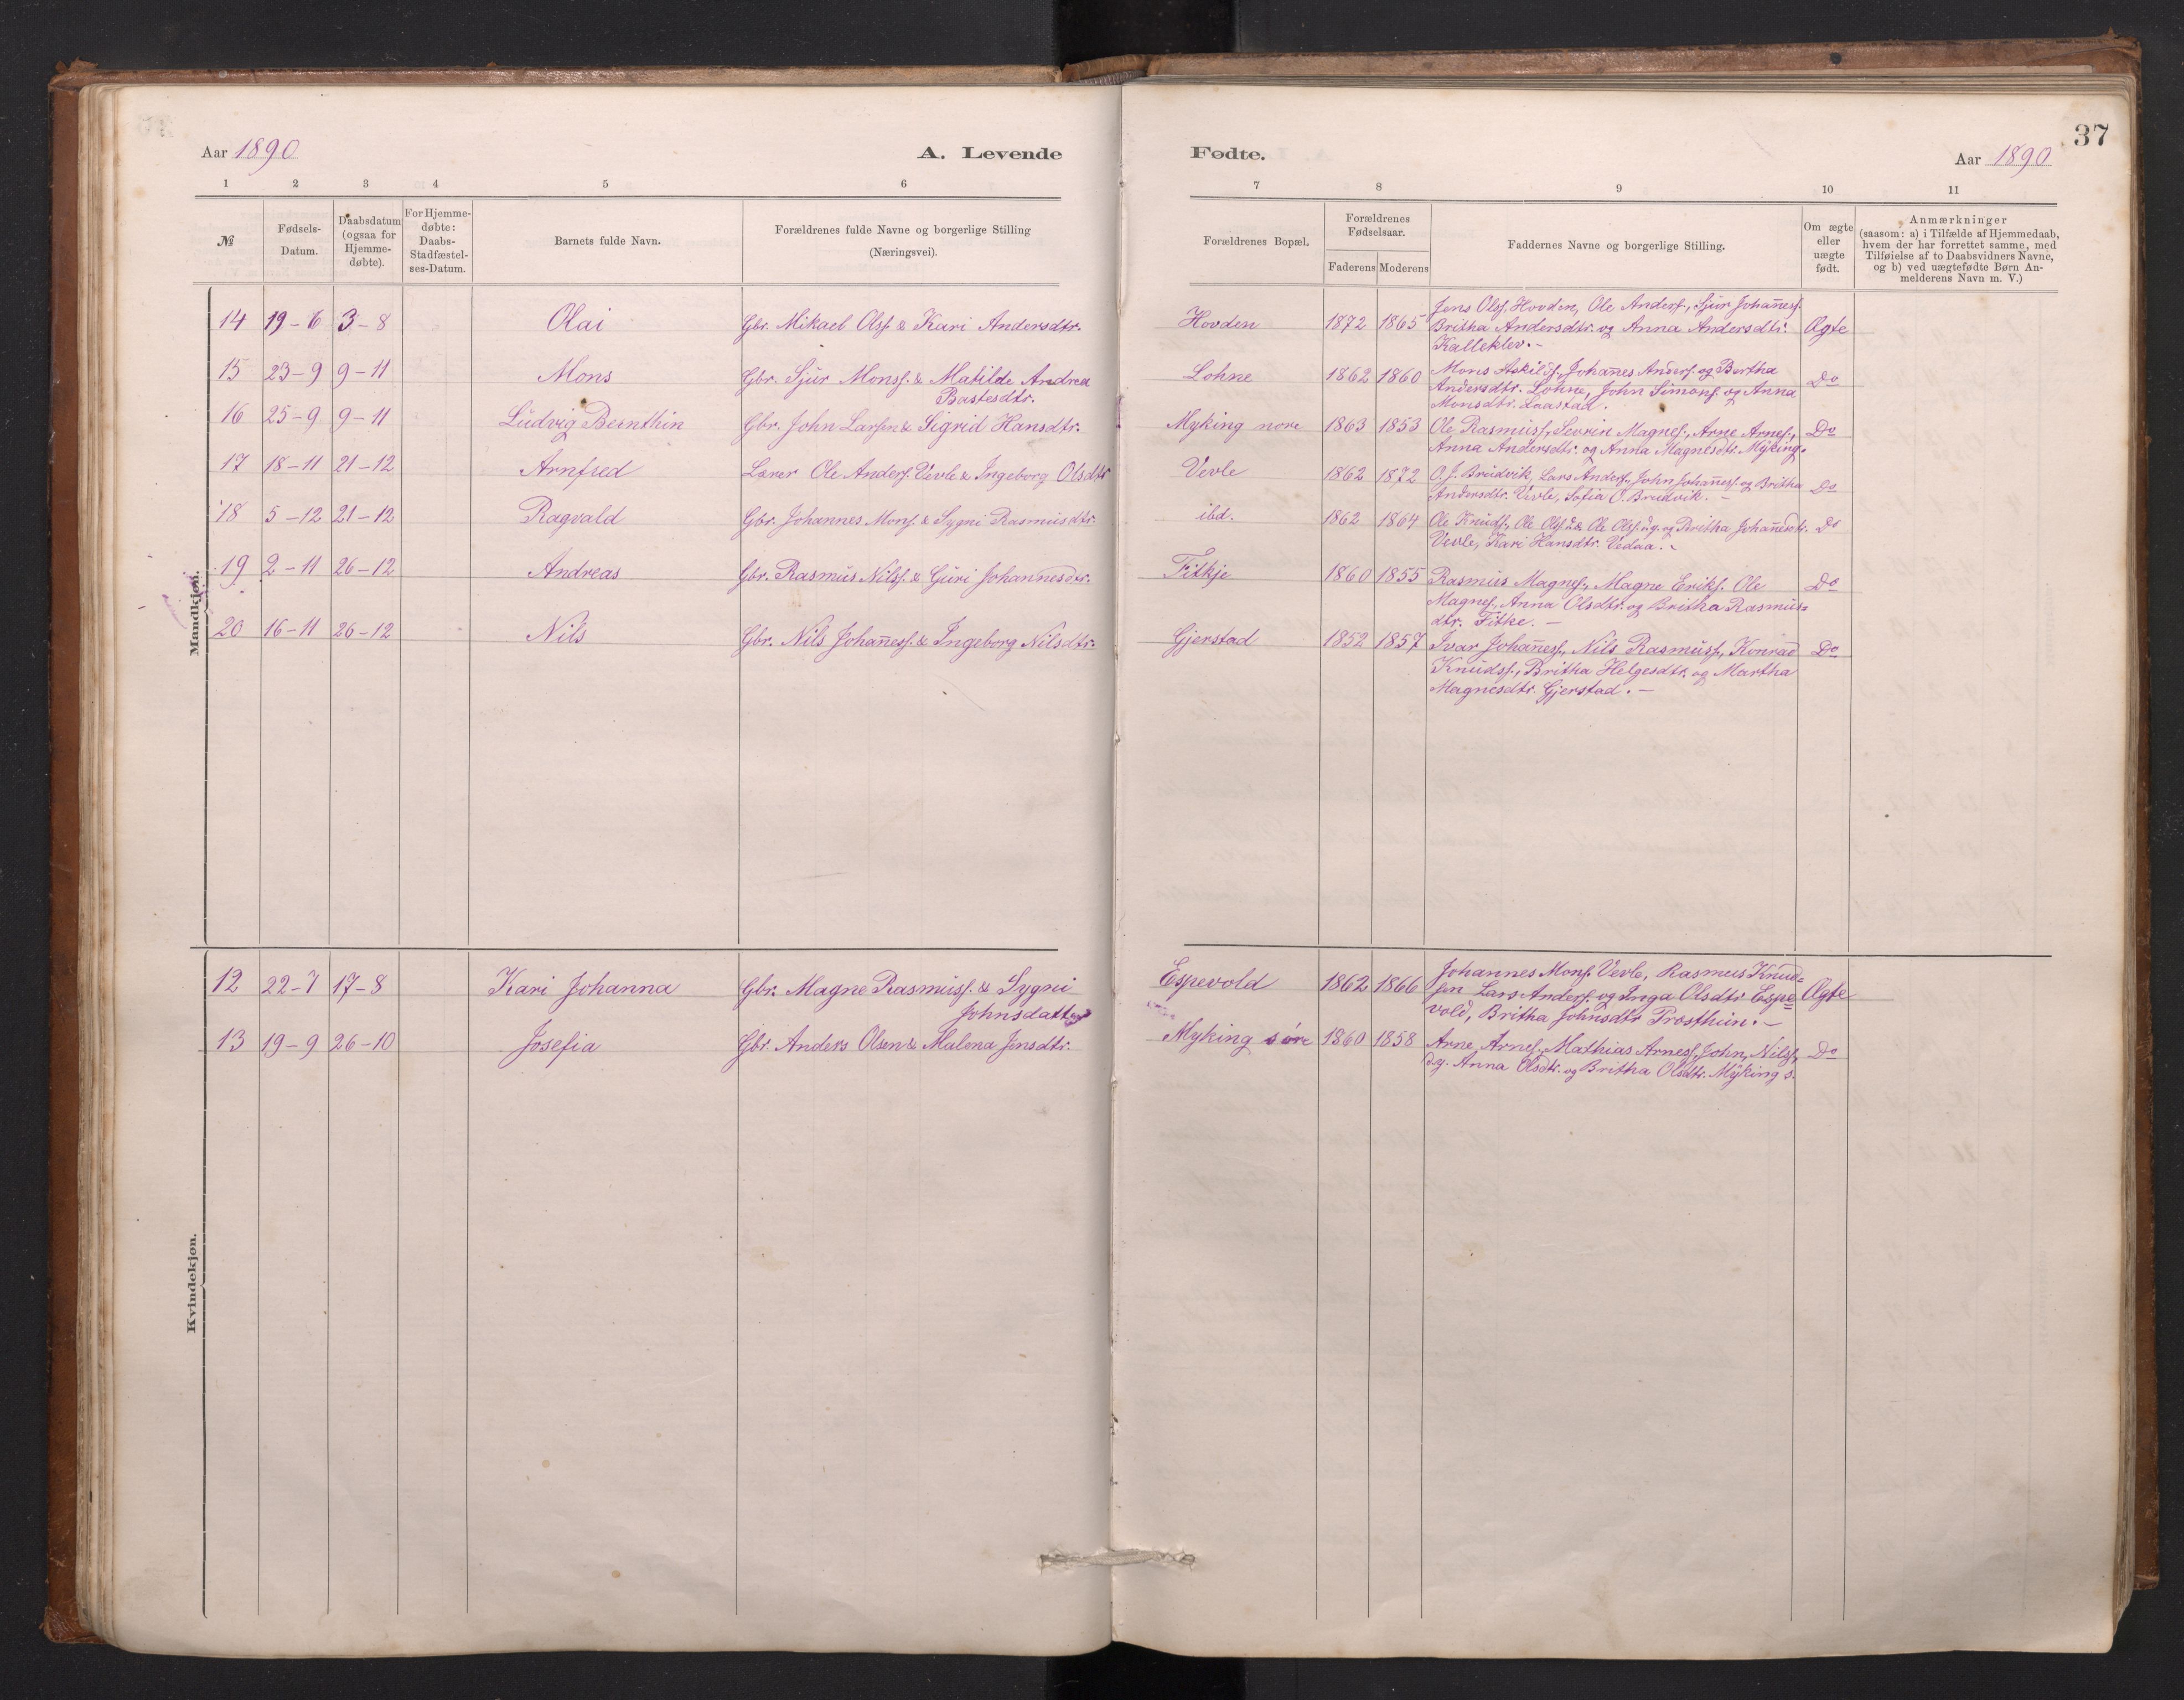 37
Aar 1890 A. Levende Fødte. Aar 1890
1 2 3 4 5 6 7 8 9 10 11
№ Fødsels-Datum. Daabsdatum (ogsaa for Hjemme-døbte). For Hjemme-døbte: Daabs-Stadfæstel-ses-Datum. Barnets fulde Navn. Forældrenes fulde Navne og borgerlige Stilling (Næringsvei). Forældrenes Bopæl. Forældrenes Fødselsaar. Faderens Moderens Faddernes Navne og borgerlige Stilling. Om ægte eller uægte født. Anmærkninger (saasom: a) i Tilfælde af Hjemmedaab, hvem der har forrettet samme, med Tilføielse af to Daabsvidners Navne, og b) ved uægtefødte Børn An-melderens Navn m. V.)
Mandkjøn.
14 19-6 3-8 Olai Gbr. Mikael Olss. & Kari Andersdtr. Hovden 1872 1865 Jens Olss. Hovden, Ole Anders., Sjur Johaness.
Britha Andersdtr. og Anna Andersdtr. Ægte
Kalleklev.-
15 23-9 9-11 Mons Gbr. Sjur Monss. & Matilde Andrea Lohne 1862 1860 Mons Askilds., Johanes Anders. og Bertha Do
Bastesdtr. Andersdtr. Lohne, John Simons. og Anna
Monsdtr. Laastad.
16 25-9 9-11 Ludvig Bernthin Gbr. John Larsen & Sigrid Hansdtr. Myking nore 1863 1853 Ole Rasmuss., Sevrin Magnes., Arne Arnes., Do
Anna Andersdtr. og Anna Magnesdtr. Myking.
17 18-11 21-12 Arnfred Lærer Ole Anders. Vevle & Ingeborg Olsdtr Vevle 1862 1872 O. J. Brudvik, Lars Anders., John Johaness. og Britha Do
Andersdtr. Vevle, Sofia O. Brudvik.-
18 5-12 21-12 Ragvald Gbr. Johannes Mons. & Sygni Rasmusdtr. ibd. 1862 1864 Ole Knuds., Ole Olss. & Ole Olss. yg. og Britha Johanesdtr. Do
Vevle, Kari Hansdtr. Vedaa.
19 2-11 26-12 Andreas Gbr. Rasmus Nilss. & Guri Johannesdtr. Fitkje 1860 1855 Rasmus Magnes., Magne Eriks. Ole Do
Magnes., Anna Olsdtr. og Britha Rasmus-
dtr. Fitke.-
20 16-11 26-12 Nils Gbr. Nils Johaness. & Ingeborg Nilsdtr. Gjerstad 1852 1857 Ivar Johaness., Nils Rasmuss., Konrad Do
Knudss., Britha Helgesdtr. og Martha
Magnesdtr. Gjerstad.-
Kvindekjøn.
12 22-7 17-8 Kari Johanna Gbr. Magne Rasmuss. & Sygni Espevold 1862 1866 Johannes Mons. Vevle, Rasmus Knud-
Johnsdatter sen Lars Anders. og Inga Olsdtr Espe Ægte
vold, Britha Johnsdtr Trosthun.-
13 19-9 26-10 Josefia Gbr. Anders Olsen & Malena Jensdtr. Myking søre 1860 1858 Arne Arnes., Mathias Arness., John Nilss., Do
dy. Anna Olsdtr. og Britha Olsdtr. Myking s.